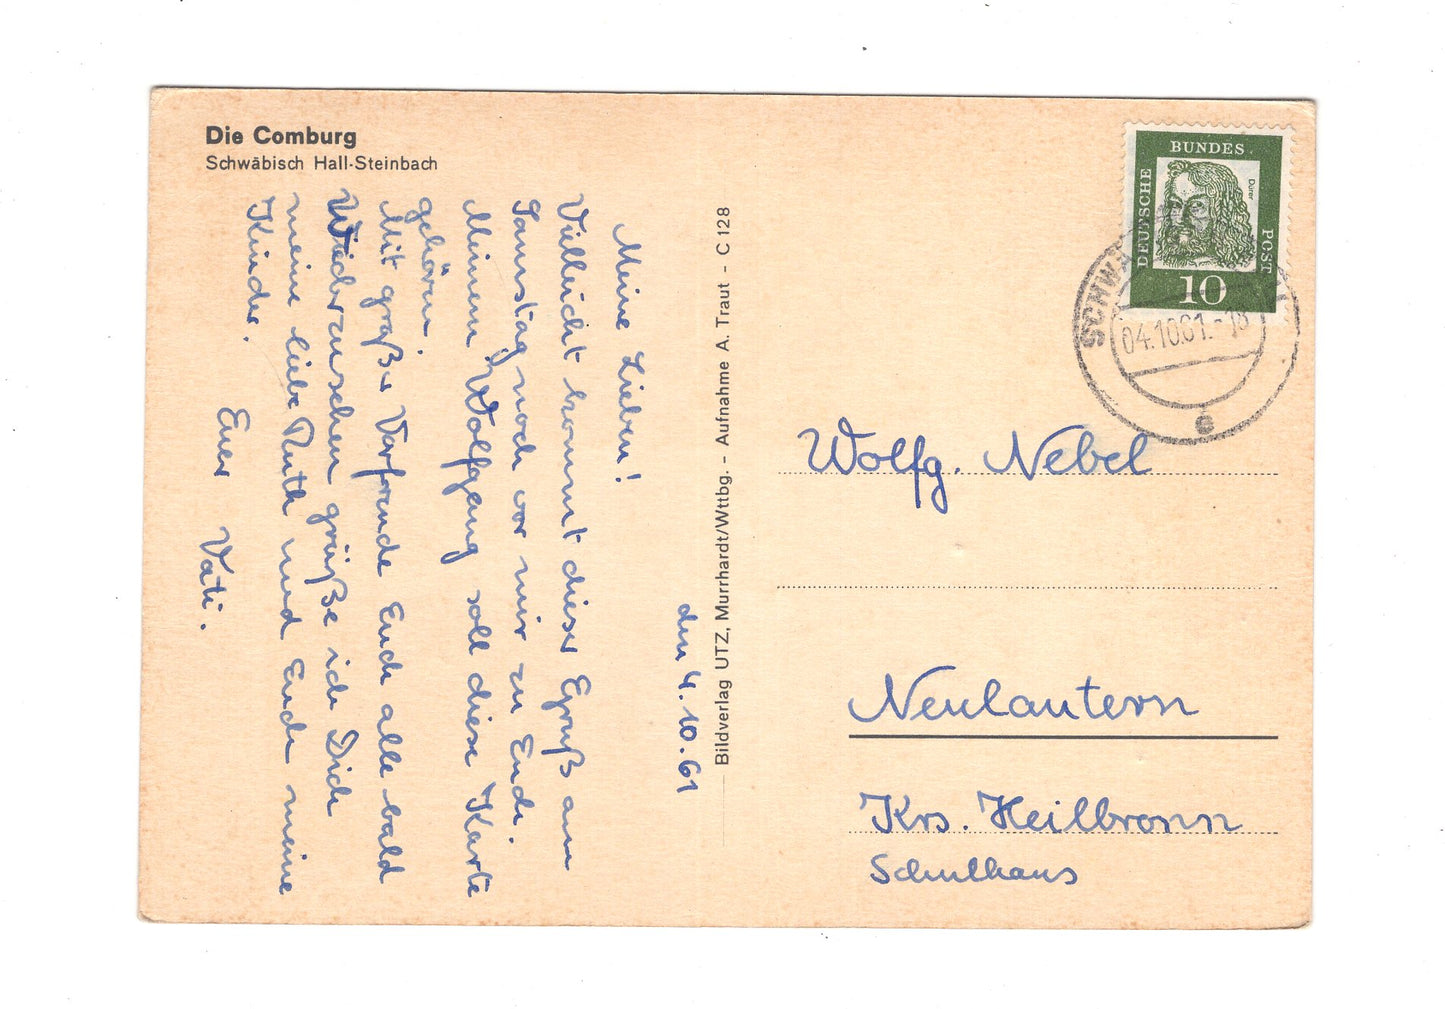 Die Comburg
Schwäbisch Hall-Steinbach
den 4. 10. 61
Meine Lieben!
Vielleicht kommt dieser Gruß am
Samstag noch vor mir zu Euch.
Meinem Wolfgang soll diese Karte
gehören.
Mit großer Vorfreude Euch alle bald
Wiederzusehen grüße ich Dich
meine liebe Ruth und Euch meine
Kinder.
Euer Vati.
Bildverlag UTZ, Murrhardt/Wttbg. - Aufnahme A. Traut - C 128
DEUTSCHE BUNDES POST
Dürer
10
04.10.61.-18
e
Wolfg. Nebel
Neulautern
Krs. Heilbronn
Schulhaus